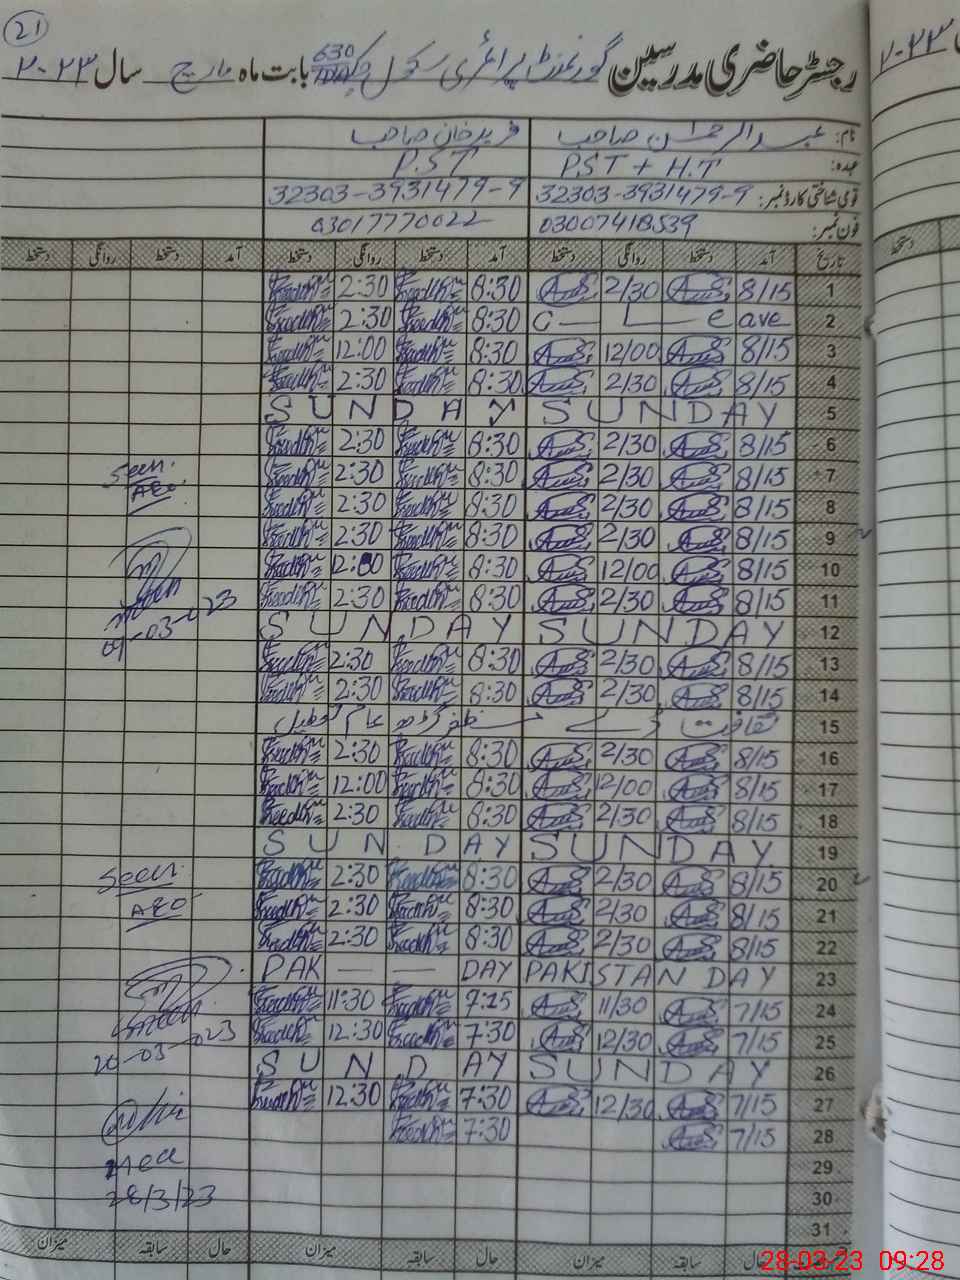 21
رجسٹر حاضری مدرسین گورنمنٹ پرائمری سکول 630 بابت ماہ مارچ سال ۲۰۲۳
نام: عبدالرحمٰن صاحب فرید خان صاحب
عہدہ: P.ST + H.T P.ST
قومی شناختی کارڈ نمبر: 32303-3931479-9 32303-3931479-9
فون نمبر: 03007418539 03017770022
تاریخ آمد دستخط روانگی دستخط آمد دستخط روانگی دستخط آمد دستخط روانگی دستخط
1 8/15 2/30 8:30 2:30
2 C—L—eave 8:30 2:30
3 8/15 12/00 8:30 12:00
4 8/15 2/30 8:30 2:30
5 SUNDAY SUNDAY
6 8/15 2/30 8:30 2:30
7 8/15 2/30 8:30 2:30
Seen
AEO
8 8/15 2/30 8:30 2:30
9 8/15 2/30 8:30 2:30
10 8/15 12/00 8:30
11 8/15 2/30 8:30 2:30
09-03-023
12 SUNDAY SUNDAY
13 8/15 2/30 8:30 2:30
14 8/15 2/30 8:30 2:30
15 ثقافت ڈے مظفر گڑھ عام تعطیل
16 8/15 2/30 8:30 2:30
17 8/15 12/00 8:30 12:00
18 8/15 2/30 8:30 2:30
19 SUNDAY SUNDAY
20 8/15 2/30 8:30 2:30
Seen
AEO
21 8/15 2/30 8:30 2:30
22 8/15 2/30 8:30 2:30
23 PAKISTAN DAY PAK — — DAY
24 7/15 11/30 7:15 11:30
25 7/15 12/30 7:30 12:30
20-03-023
26 SUNDAY SUNDAY
27 7/15 12/30 7:30 12:30
28 7/15 7:30
29
mea
30
28/3/23
31
حال سابقہ میزان حال سابقہ میزان حال سابقہ میزان
28-03-23 09:28
۲۰۲۳
دستخط